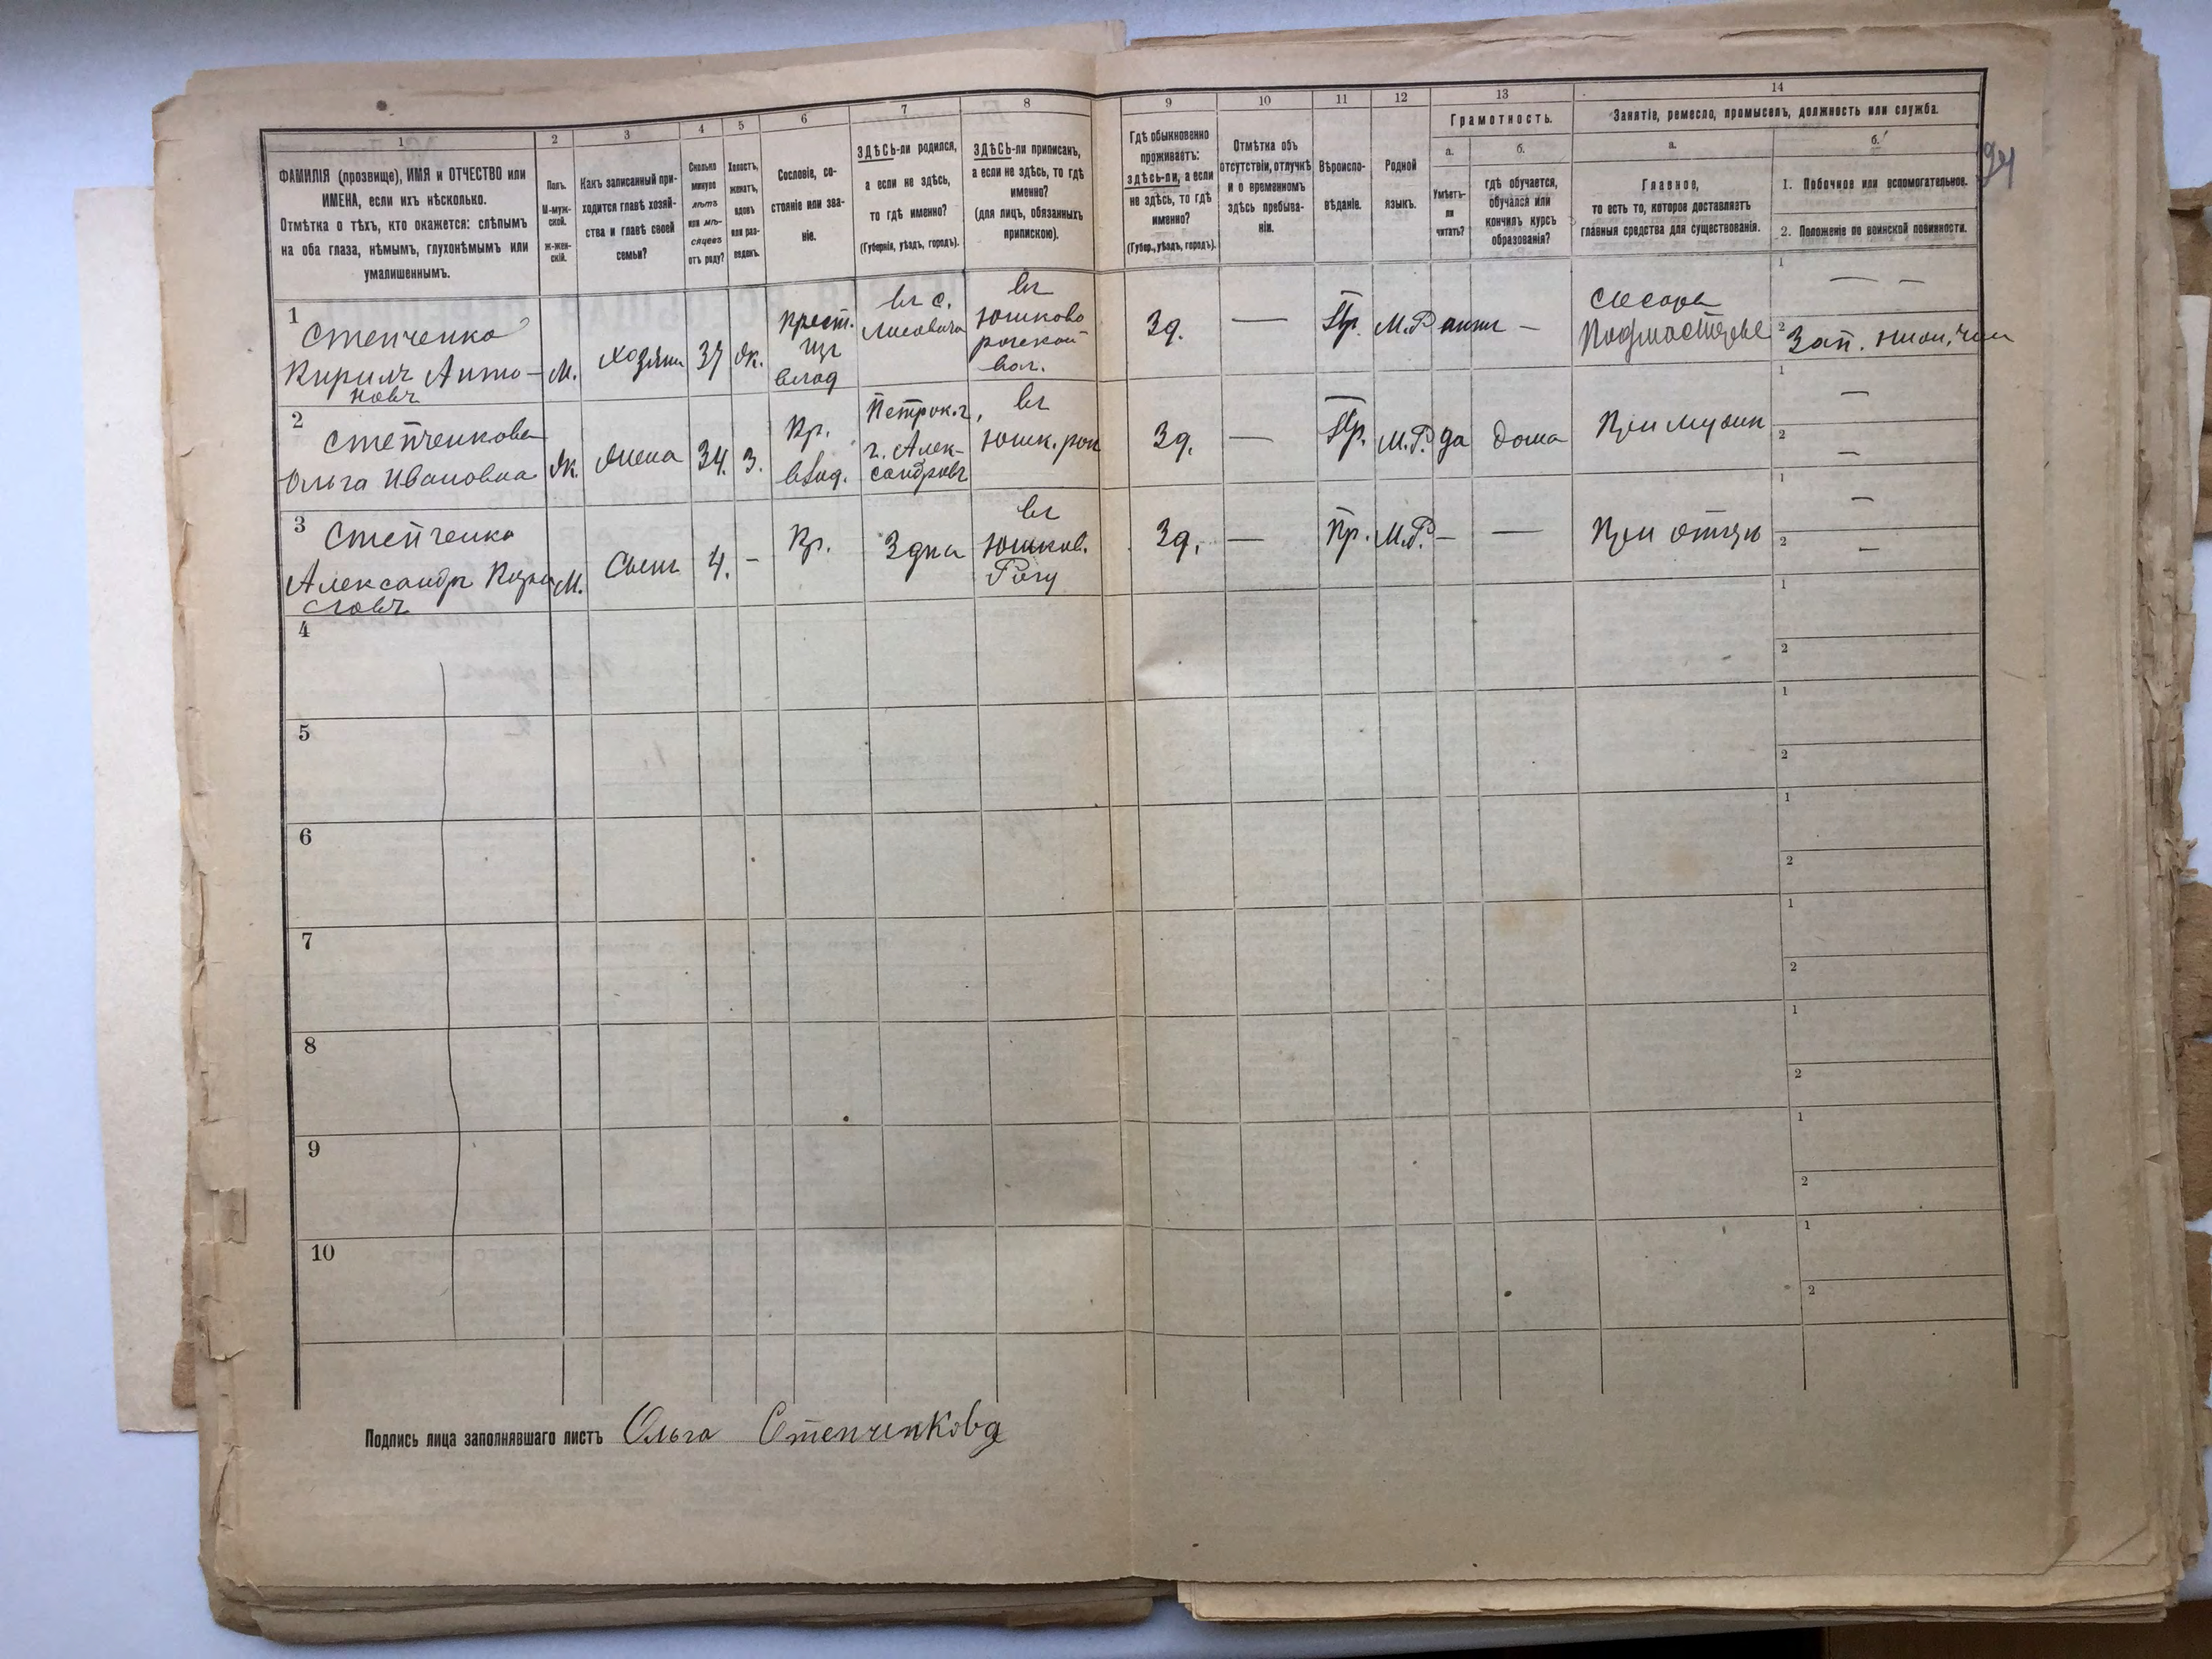 1
ФАМИЛІЯ (прозвище), ИМЯ и ОТЧЕСТВО или
ИМЕНА, если ихъ нѣсколько.
Отмѣтка о тѣхъ, кто окажется: слѣпымъ
на оба глаза, нѣмымъ, глухонѣмымъ или
умалишеннымъ.
2
Полъ.
М-муж-
ской.
Ж-жен-
скій.
3
Какъ записанный при-
ходится главѣ хозяй-
ства и главѣ своей
семьи?
4
Сколько
минуло
лѣтъ
или мѣ-
сяцевъ
отъ роду?
5
Холостъ,
женатъ,
вдовъ
или раз-
веденъ.
6
Сословіе, со-
стояніе или зва-
ніе.
7
ЗДѢСЬ-ли родился,
а если не здѣсь,
то гдѣ именно?
(Губернія, уѣздъ, городъ).
8
ЗДѢСЬ-ли приписанъ,
а если не здѣсь, то гдѣ
именно?
(для лицъ, обязанныхъ
припискою).
9
Гдѣ обыкновенно
проживаетъ:
здѣсь-ли, а если
не здѣсь, то гдѣ
именно?
(Губер., уѣздъ, городъ).
10
Отмѣтка объ
отсутствіи, отлучкѣ
и о временномъ
здѣсь пребыва-
ніи.
11
Вѣроиспо-
вѣданіе.
12
Родной
языкъ.
13
Грамотность.
а.
Умѣетъ-
ли
читать?
б.
гдѣ обучается,
обучался или
кончилъ курсъ
образованія?
14
Занятіе, ремесло, промыселъ, должность или служба.
а.
Главное,
то есть то, которое доставляетъ
главныя средства для существованія.
б.
1. Побочное или вспомогательное.
2. Положеніе по воинской повинности.
1
Степченко
Кирилъ Анто-
новъ
М.
хозяин
37
Ж.
Крест.
изъ
влад
въ с.
въ
Юшково
рогской
вол.
Зд.
—
Пр.
М.Р
—
слесарь
Подмастерье
1
— —
2
Зап.
2
Степченкова
Ольга Ивановна
Ж.
Жена
34.
З.
Кр.
влад.
Петрок. г,
г. Алек-
сандровъ
въ
Юшк. рог
Зд.
—
Пр.
М.Р.
да
дома
При мужи
1
—
2
—
3
Степченко
Александръ Кири
ловъ
М.
Сынъ
4.
-
Кр.
Здися
въ
Юшков.
Рогу
Зд.
—
Пр.
М.Р.
—
—
При отцѣ
1
—
2
—
4
1
2
5
1
2
6
1
2
7
1
2
8
1
2
9
1
2
10
1
2
Подпись лица заполнявшаго листъ Ольга Степченкова